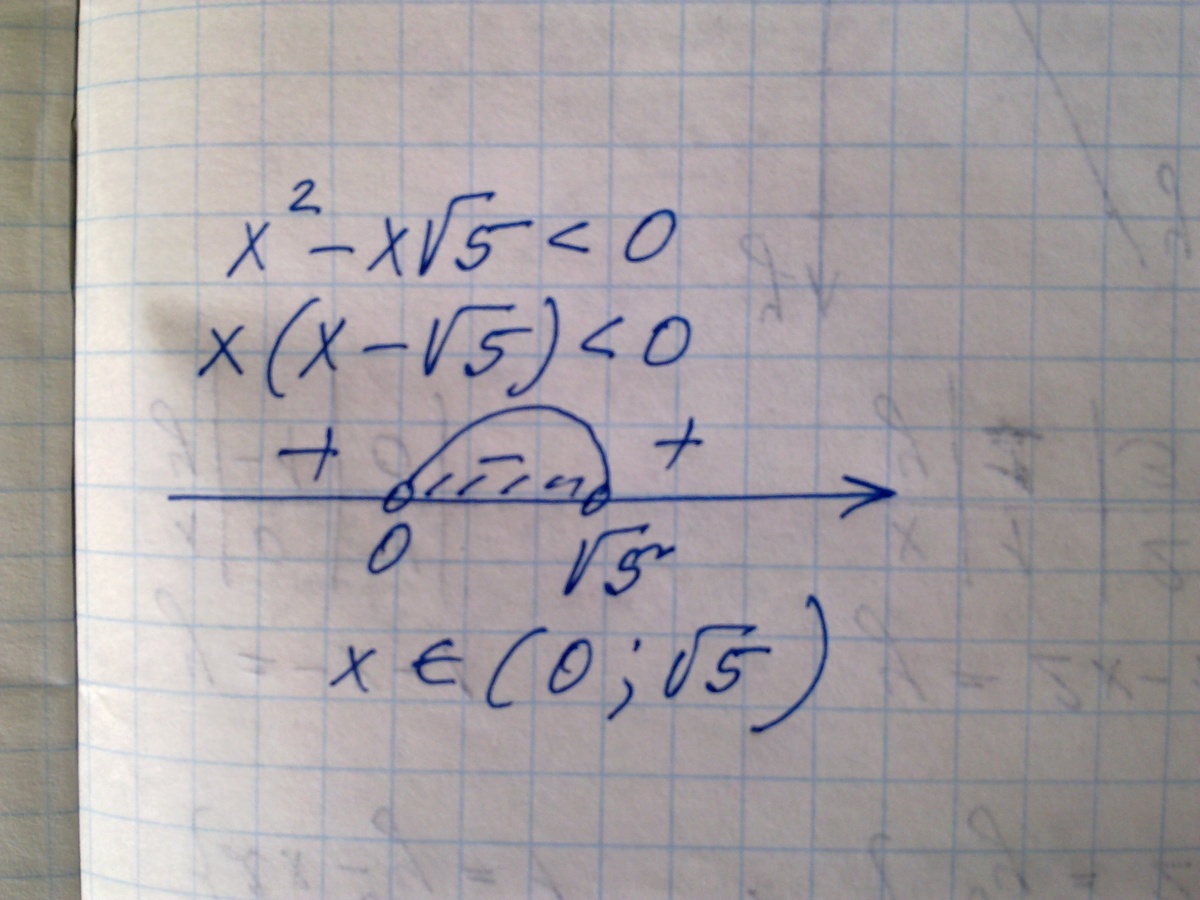 x² - x√5 < 0
x(x - √5) < 0
+ - +
0 √5
x ∈ (0; √5)